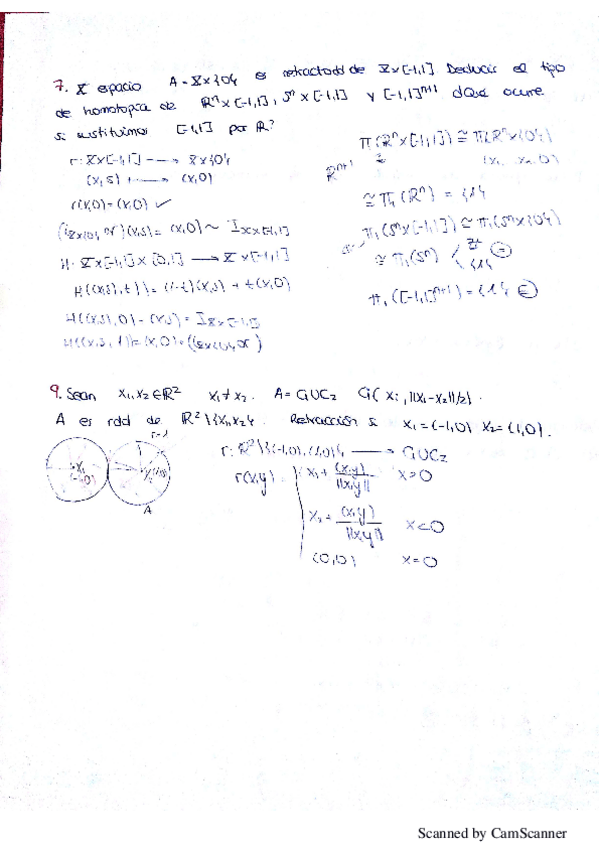 7. X espacio A = X×{0} es retractodd de X×[-1,1]. Deducir el tipo
de homotopía de ℝⁿ×[-1,1], Sⁿ×[-1,1] y [-1,1]ⁿ⁺¹ ¿Qué ocurre
si sustituimos [-1,1] por ℝ?
r: X×[-1,1] ---→ X×{0}
(x,s) ---→ (x,0)
r(x,0) = (x,0) ✓
(i_{X×{0}} ∘ r)(x,s) = (x,0) ~ I_{X×[-1,1]}
H: X×[-1,1]×[0,1] → X×[-1,1]
H((x,s),t) = (1-t)(x,s) + t(x,0)
H((x,s),0) = (x,s) = I_{X×[-1,1]}
H((x,s),1) = (x,0) = (i_{X×{0}} ∘ r)
π(ℝⁿ×[-1,1]) ≅ π(ℝⁿ×{0})
ℝⁿ⁺¹
≅ π₁(ℝⁿ) = {1}
π₁(Sⁿ×[-1,1]) ≅ π₁(Sⁿ×{0})
≅ π₁(Sⁿ) ℤ
{1}
π₁([-1,1]ⁿ⁺¹) = {1}
9. Sean x₁,x₂ ∈ ℝ² x₁ ≠ x₂. A = C₁∪C₂ Ci(xi, ||x₁-x₂||/2).
A es rdd de ℝ²\{x₁,x₂}. Retracción si x₁ = (-1,0) x₂ = (1,0).
r=1
x₁
(-1,0)
A
r: ℝ²\{(-1,0),(1,0)} → C₁∪C₂
r(x,y) = x₁ + (x,y)/||x,y|| x>0
x₂ + (x,y)/||x,y|| x<0
(0,0) x=0
Scanned by CamScanner